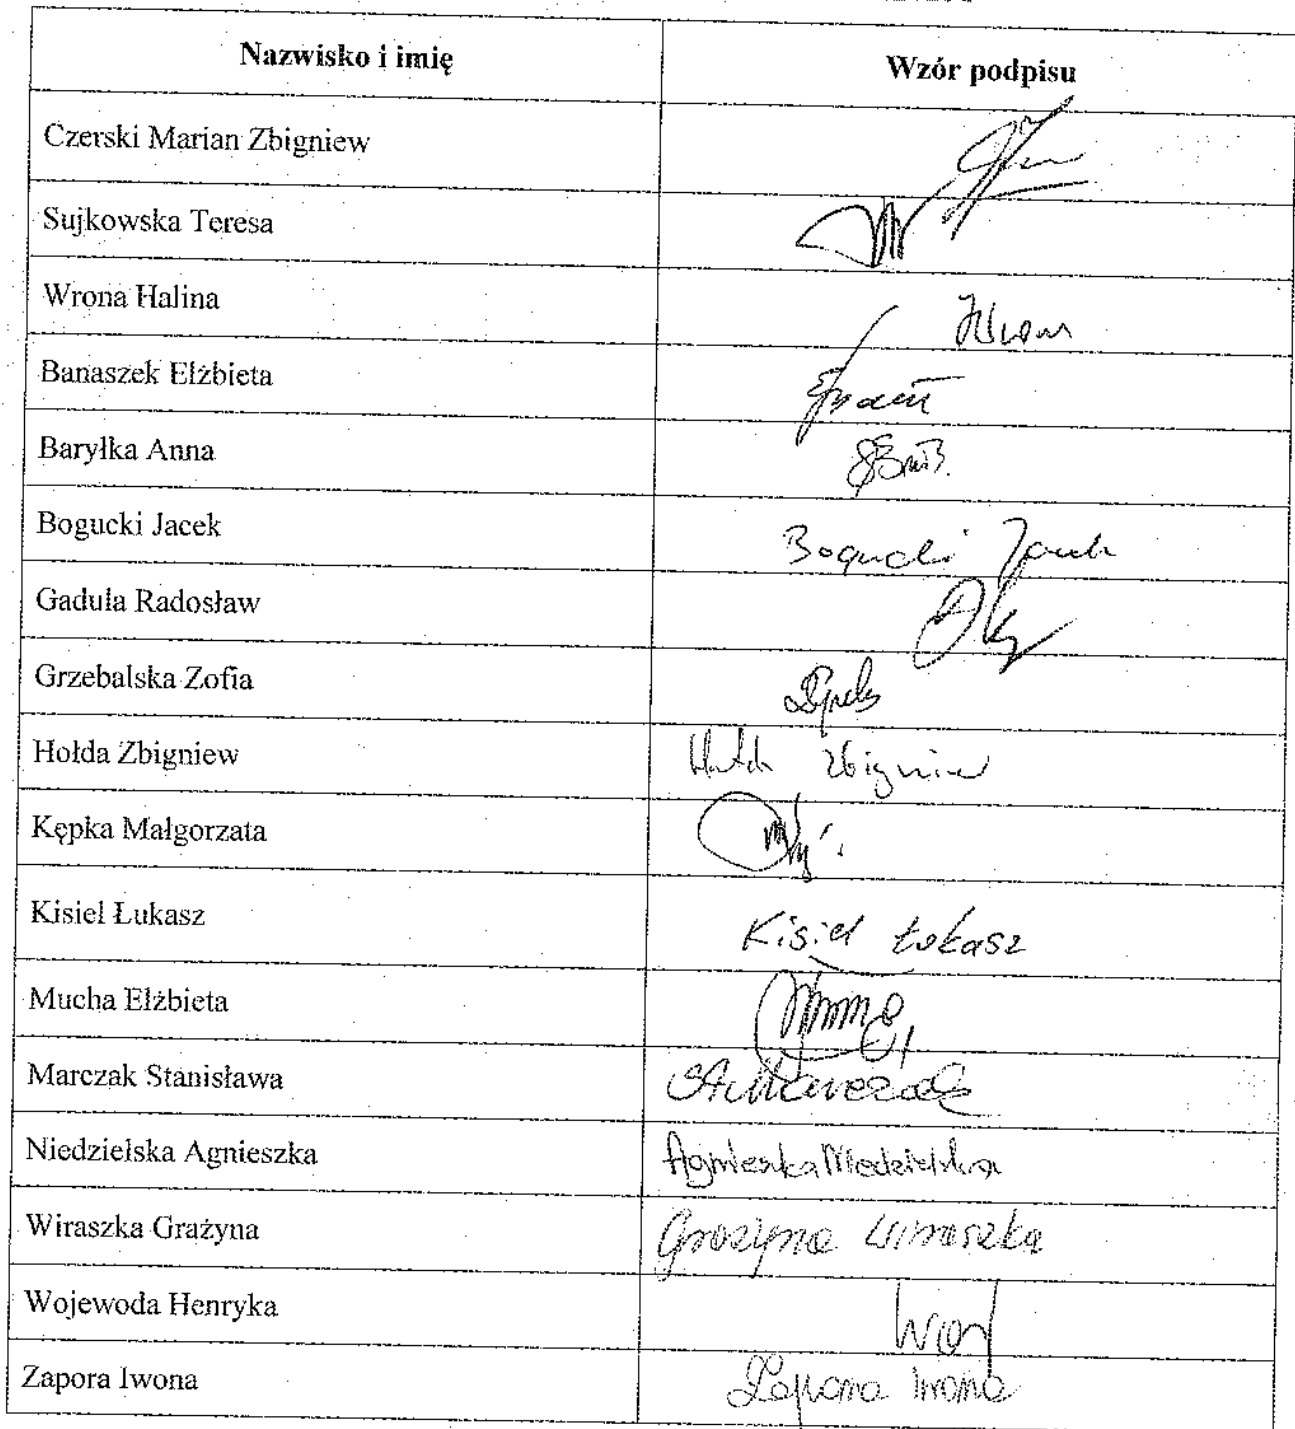 Nazwisko i imię Wzór podpisu
Czerski Marian Zbigniew
Sujkowska Teresa
Wrona Halina
Banaszek Elżbieta
Baryłka Anna
Bogucki Jacek Bogucki Jacek
Gadula Radosław
Grzebalska Zofia
Hołda Zbigniew Hołda Zbigniew
Kępka Małgorzata
Kisiel Łukasz Kisiel Łukasz
Mucha Elżbieta
Marczak Stanisława St Marczak
Niedzielska Agnieszka Agnieszka Niedzielska
Wiraszka Grażyna Grażyna Wiraszka
Wojewoda Henryka
Zapora Iwona Zapora Iwona